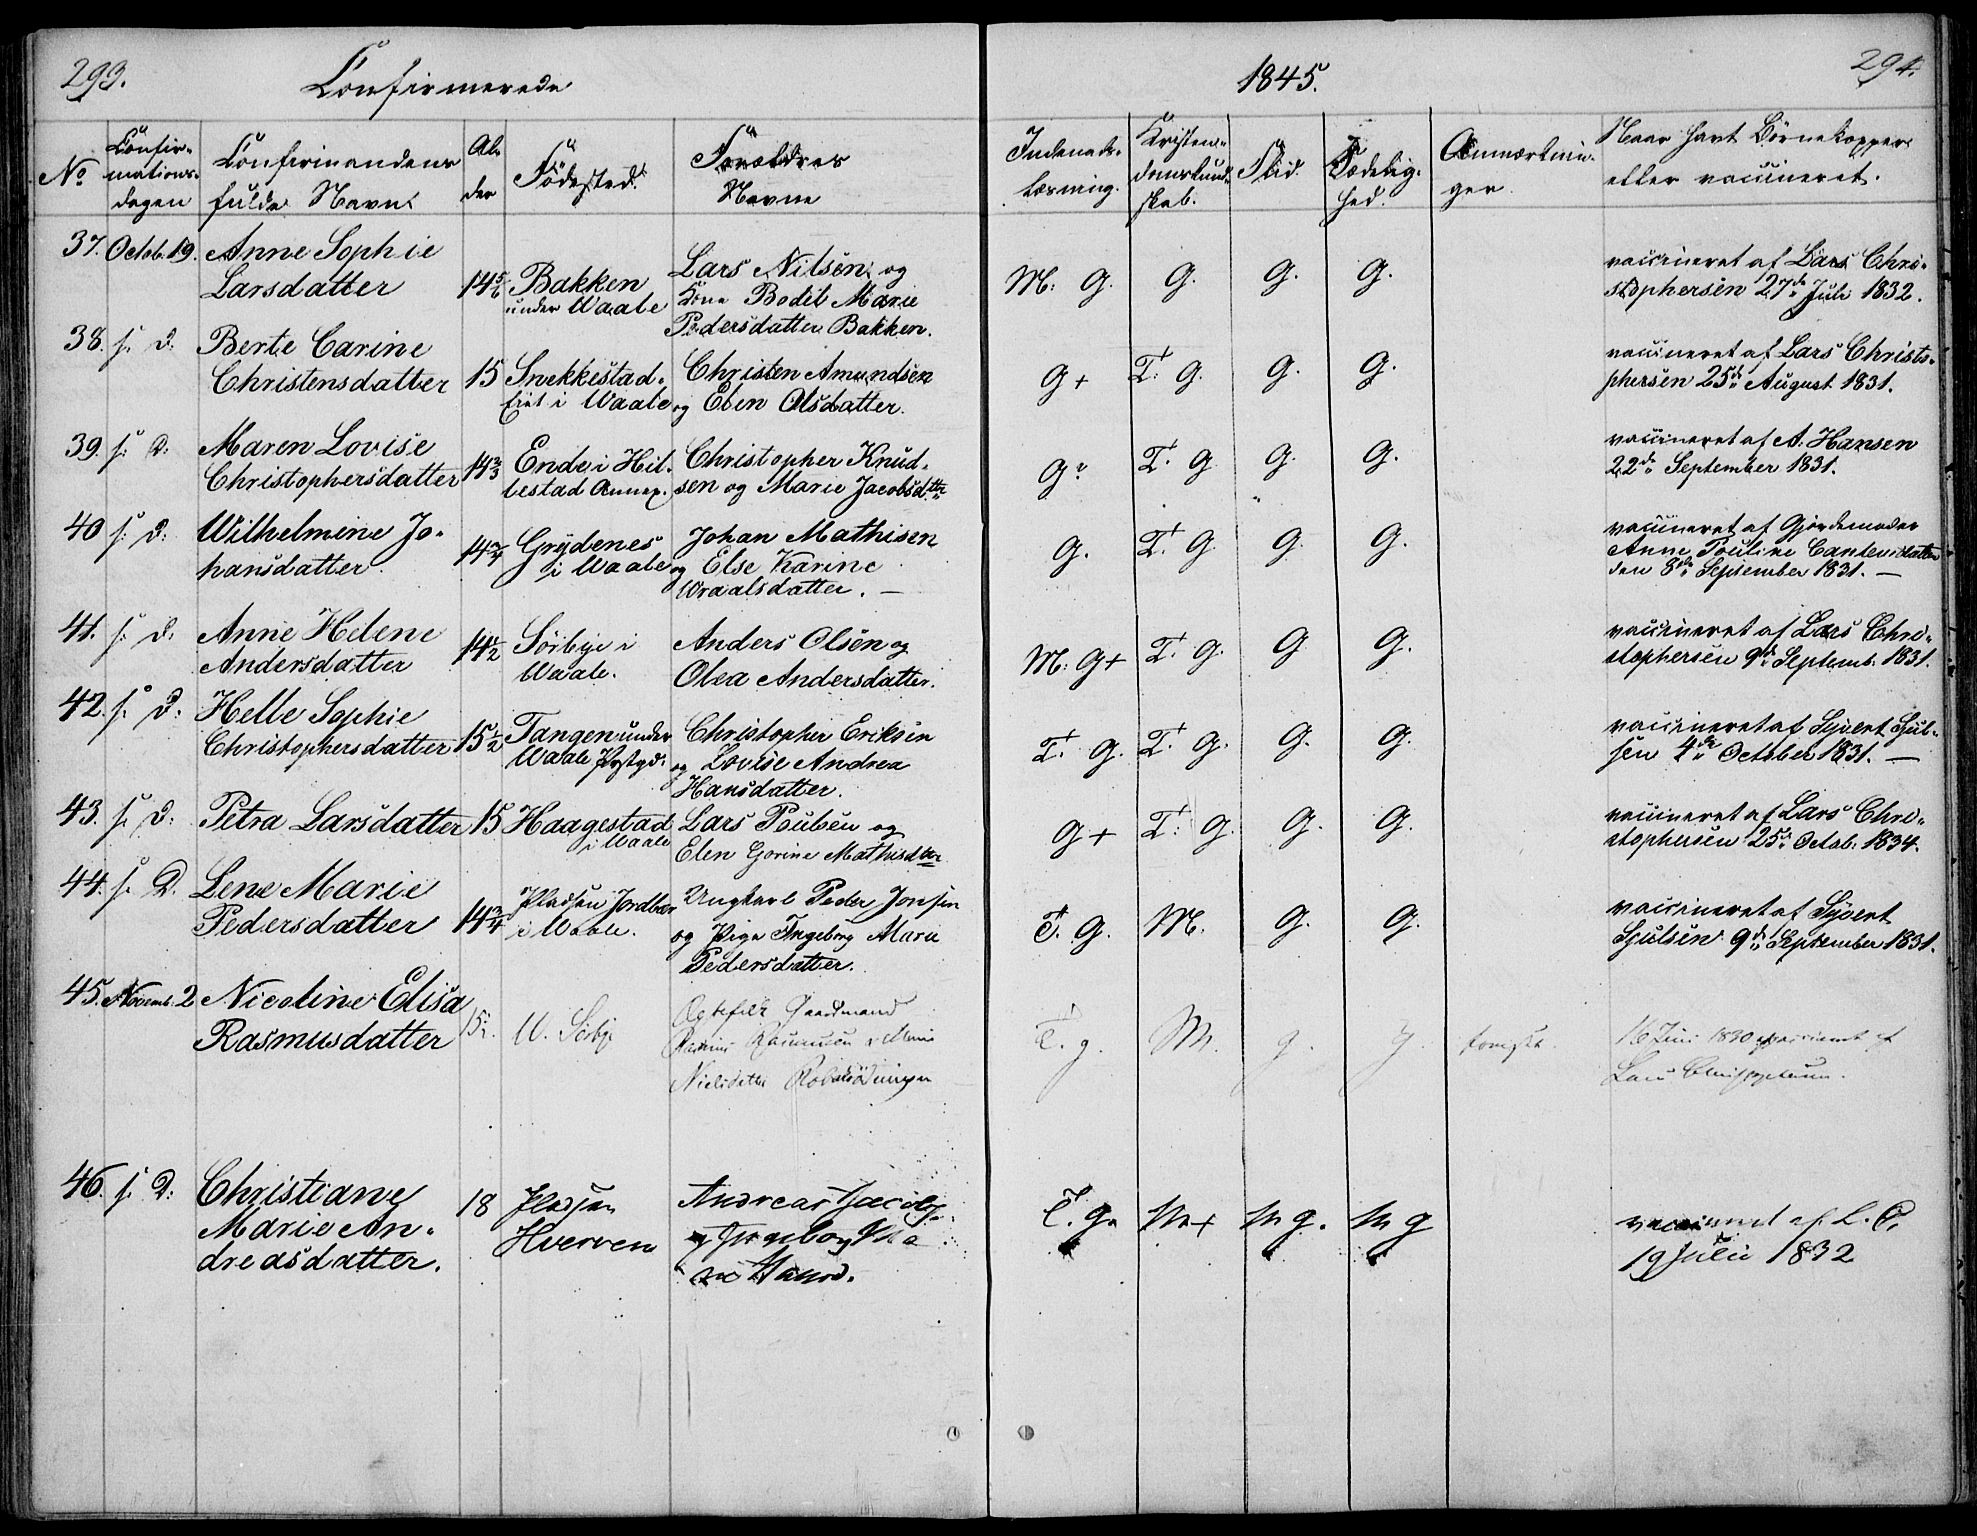 293.
Confirmerede
1845.
294.
No
Confir-
mations-
dagen
Confirmandens
fulde Navn.
Al-
der
Födested.
Forældres
Navne
Indenads-
læsning.
Kristen-
domskund-
skab.
Flid.
Sædelig-
hed.
Anmærknin-
ger.
Naar havt Börnekopper
eller vaccineret.
37. Octob. 19. Anne Sophie
Larsdatter 14 5/6 Bakken
under Waale
Lars Nilsen og
Kone Bodil Marie
Pedersdatter Bakken.
M: G. G. G. G.
vaccineret af Lars Chri-
stophersen 27de Juli 1832.
38. s. D. Berte Carine
Christensdatter 15 Snekkestad-
eiet i Waale
Christen Amundsen
og Elen Olsdatter.
G+ T. G. G. G.
vaccineret af Lars Christo-
phersen 25de August 1831.
39. s. D. Maren Lovise
Christophersdatter 14 2/3 Ende i Hil-
lestad Annex.
Christopher Knud-
sen og Marie Jacobsdtter
G. T. G G. G.
vaccineret af A. Hansen
22de September 1831.
40 s. D. Wilhelmine Jo-
hansdatter 14 3/4 Grydenes
i Waale
Johan Mathisen
og Else Karine
Wraalsdatter. —
G. T. G G. G.
vaccineret af Gjordemoder
Anne
den 8de September 1831. —
41. s. D. Anne Helene
Andersdatter 14 1/2 Sörbye i
Waale.
Anders Olsen og
Olea Andersdatter.
M: G+ T. G. G G.
vaccineret af Lars Chri-
stophersen 9de Septemb. 1831.
42. s. D. Helle Sophie
Christophersdatter 15 1/2 Tangen under
Waale Præstgd.
Christopher Eriksen
og Lovise Andrea
Hansdatter.
T. G. T. G. G. G.
vaccineret af Syvert Gjul-
sen 4de October 1831. —
43. s. D. Petra Larsdatter 15 Haagestad
i Waale
Lars Poulsen og
Elen Gorine Mathisdtter
G+ T. G. G. G.
vaccineret af Lars Chri-
stophersen 25de Octob. 1834.
44. s. D. Lene Marie
Pedersdatter 14 3/4 Pladsen Jordbær
i Waale.
Ungkarl Peder Jonsen
og Pige Ingeborg Marie
Pedersdatter.
T. G. M. G. G.
vaccineret af Syvert
Gjulsen 9de September 1831.
45. Novemb. 2 Nicoline Elisa
Rasmusdatter 15 U. Sörby
Ægtefolk Gaardmand
Rasmus Rasmussen
Nielsdatter
T. g. M. g. g
16 Juni 1830 af
Lars
46. s. D. Christiane
Marie An-
dreasdatter. 18 Pladsen
Hverven
Andreas Jacobs.
og Ingeborg
T. g. M+ M g. M g
vaccineret af L. C.
19 Julii 1832